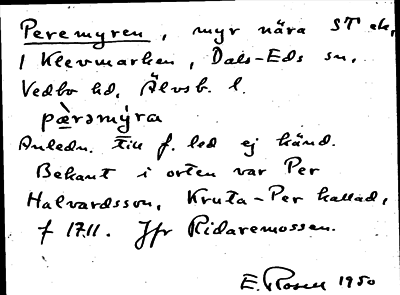 Peremyren, myr nära ST ek,
1 Klevmarken, Dals-Eds sn,
Vedbo hd, Älvsb. l.
pæ̀rəmýra
Anledn. till f. led ej känd.
Bekant i orten var Per
Halvardsson, Kruta-Per kallad,
f 1711. Jfr Ridaremossen.
E. Rosell 1950